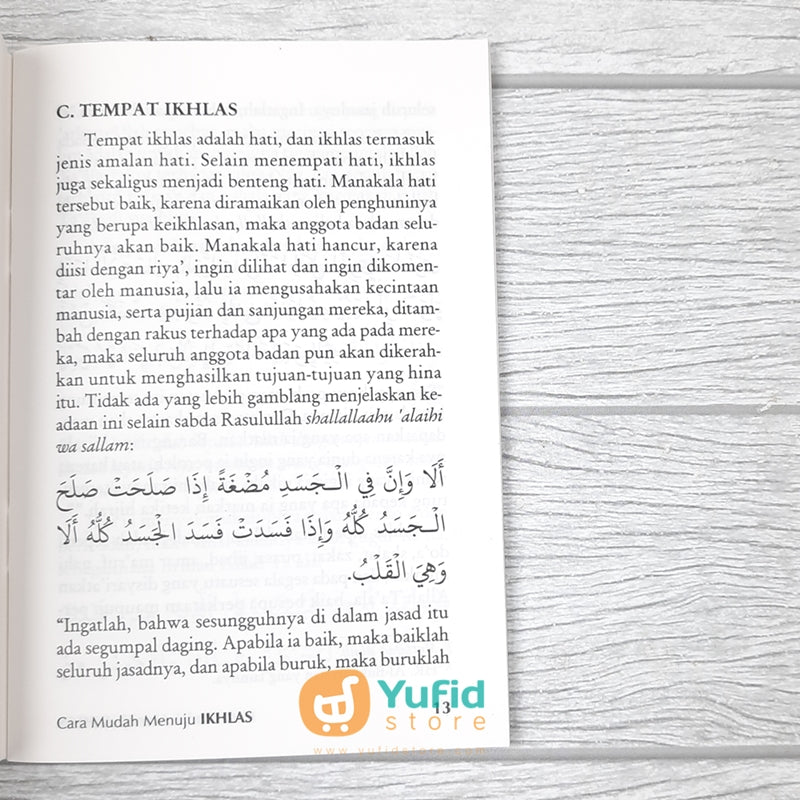 C. TEMPAT IKHLAS
Tempat ikhlas adalah hati, dan ikhlas termasuk
jenis amalan hati. Selain menempati hati, ikhlas
juga sekaligus menjadi benteng hati. Manakala hati
tersebut baik, karena diramaikan oleh penghuninya
yang berupa keikhlasan, maka anggota badan selu-
ruhnya akan baik. Manakala hati hancur, karena
diisi dengan riya’, ingin dilihat dan ingin dikomen-
tar oleh manusia, lalu ia mengusahakan kecintaan
manusia, serta pujian dan sanjungan mereka, ditam-
bah dengan rakus terhadap apa yang ada pada mere-
ka, maka seluruh anggota badan pun akan dikerah-
kan untuk menghasilkan tujuan-tujuan yang hina
itu. Tidak ada yang lebih gamblang menjelaskan ke-
adaan ini selain sabda Rasulullah shallallaahu 'alaihi
wa sallam:
أَلَا وَإِنَّ فِي الْـجَسَدِ مُضْغَةً إِذَا صَلَحَتْ صَلَحَ
الْـجَسَدُ كُلُّهُ وَإِذَا فَسَدَتْ فَسَدَ الْجَسَدُ كُلُّهُ أَلَا
وَهِيَ الْقَلْبُ.
“Ingatlah, bahwa sesungguhnya di dalam jasad itu
ada segumpal daging. Apabila ia baik, maka baiklah
seluruh jasadnya, dan apabila buruk, maka buruklah
Cara Mudah Menuju IKHLAS
13
Yufid
store
www.yufidstore.com